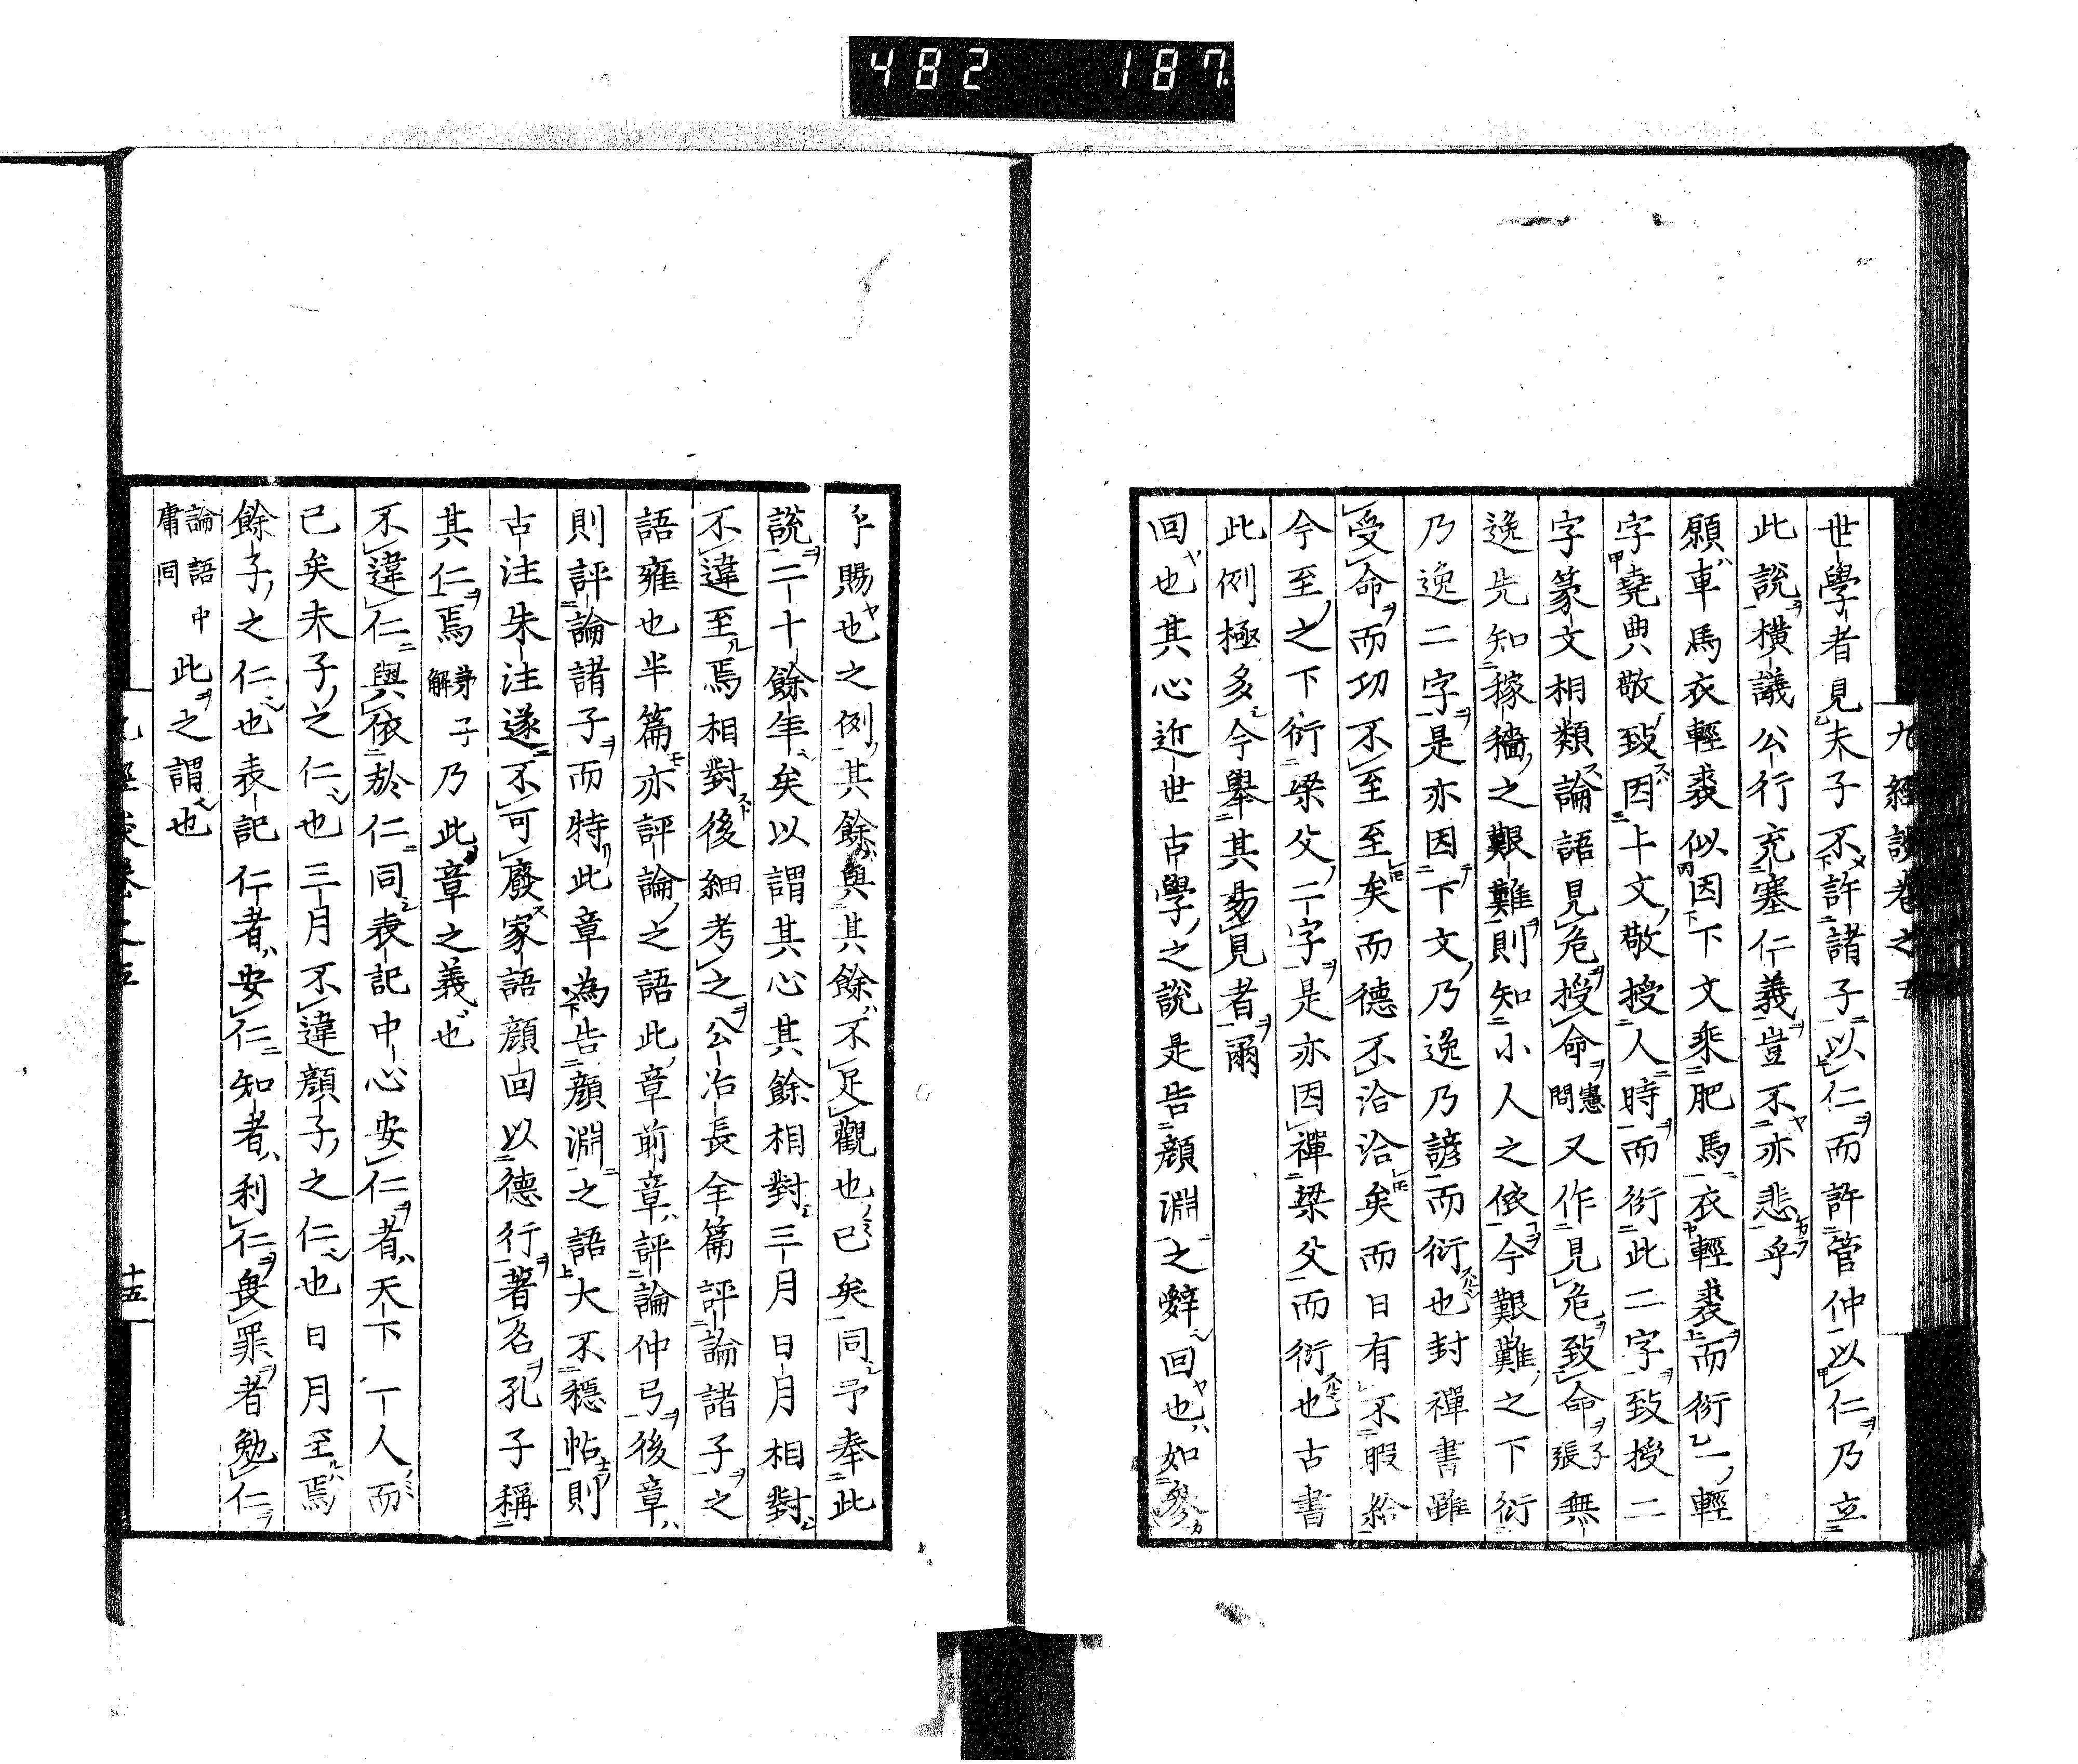 482 187
九經談卷之五
世學者見夫子不許諸子以仁而許管仲以仁乃立
此說橫議公行充塞仁義豈不亦悲乎
願車馬衣輕裘似因下文乘肥馬衣輕裘而衍一輕
字堯典敬致因上文敬授人時而衍此二字致授二
字篆文相類論語見危授命憲問又作見危致命子張無
逸先知稼穡之艱難則知小人之依今艱難之下衍
乃逸二字是亦因下文乃逸乃諺而衍也封禪書雖
受命而功不至至矣而德不洽洽矣而日有不暇給
今至之下衍梁父二字是亦因禪梁父而衍也古書
此例極多今舉其易見者爾
回也其心近世古學之說是告顏淵之辭回也如參
乎賜也之例其餘與其餘不足觀也已矣同予奉此
說二十餘年矣以謂其心其餘相對三月日月相對
不違至焉相對後細考之公冶長全篇評論諸子之
語雍也半篇亦評論之語此章前章評論仲弓後章
則評論諸子而特此章為告顏淵之語大不穩帖則
古注朱注遂不可廢家語顏回以德行著名孔子稱
其仁焉弟子解乃此章之義也
不違仁與依於仁同表記中心安仁者天下一人而
已矣夫子之仁也三月不違顏子之仁也日月至焉
餘子之仁也表記仁者安仁知者利仁畏罪者勉仁
論語中庸同此之謂也
十五